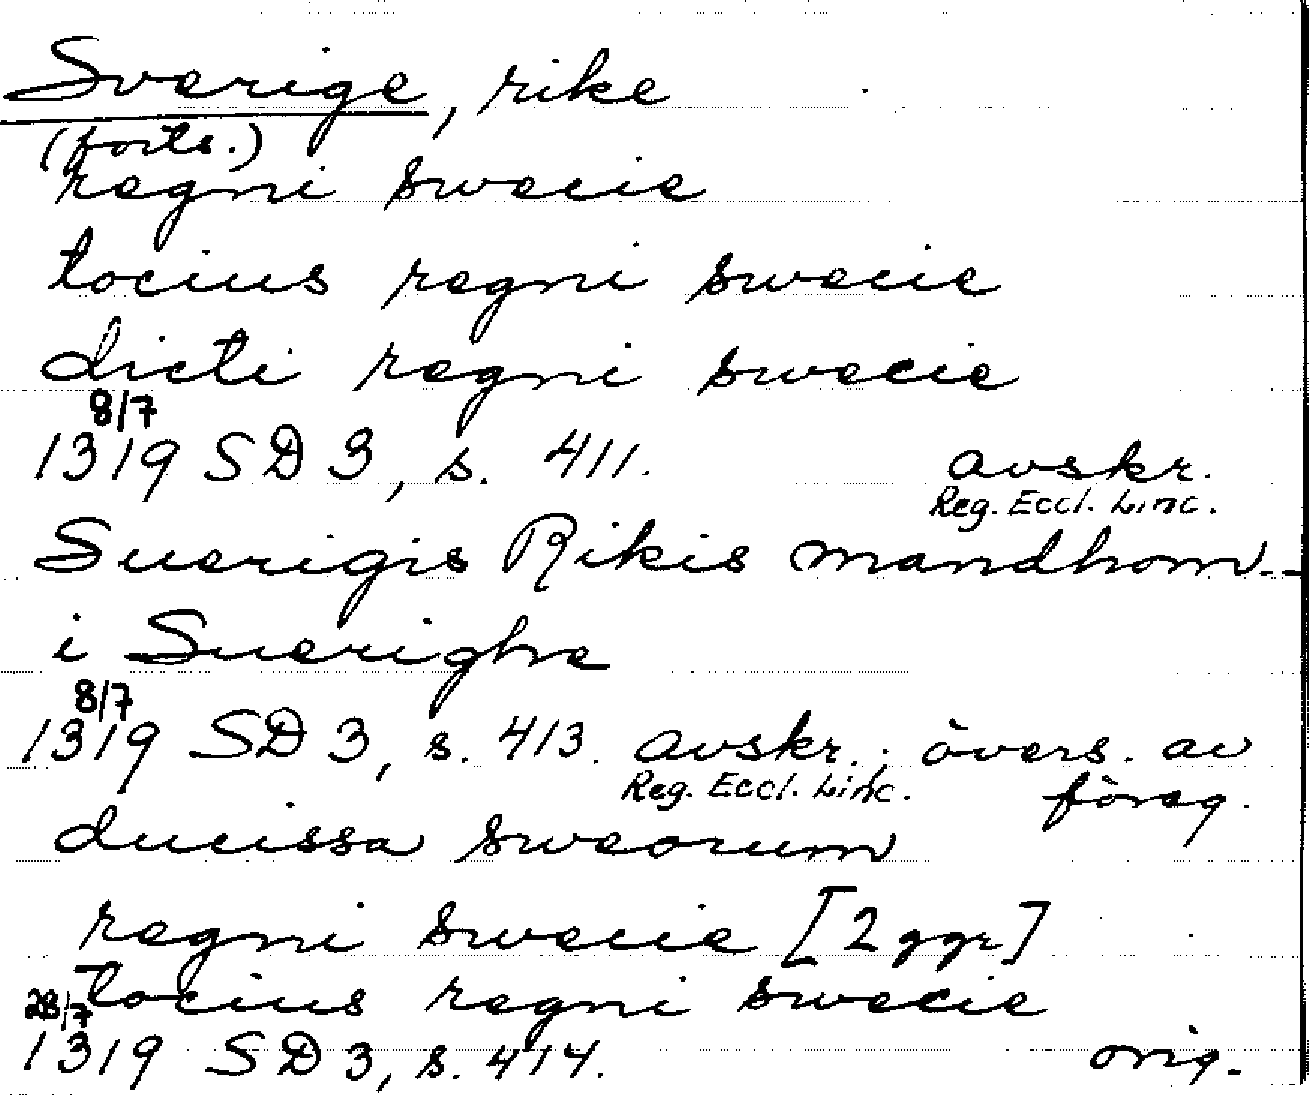 Sverige, rike
(forts.)
regni swecie
tocius regni swecie
dicti regni swecie
8/7
1319 SD 3, s. 411. avskr.
Reg. Eccl. Linc.
Suerigis Rikis mandhom--
i Suerighe
8/7
1319 SD 3, s. 413. avskr.; övers. av
Reg. Eccl. Linc. föreg.
ducissa sweorum
regni swecie [2 ggr]
tocius regni swecie
28/7
1319 SD 3, s. 414. orig.